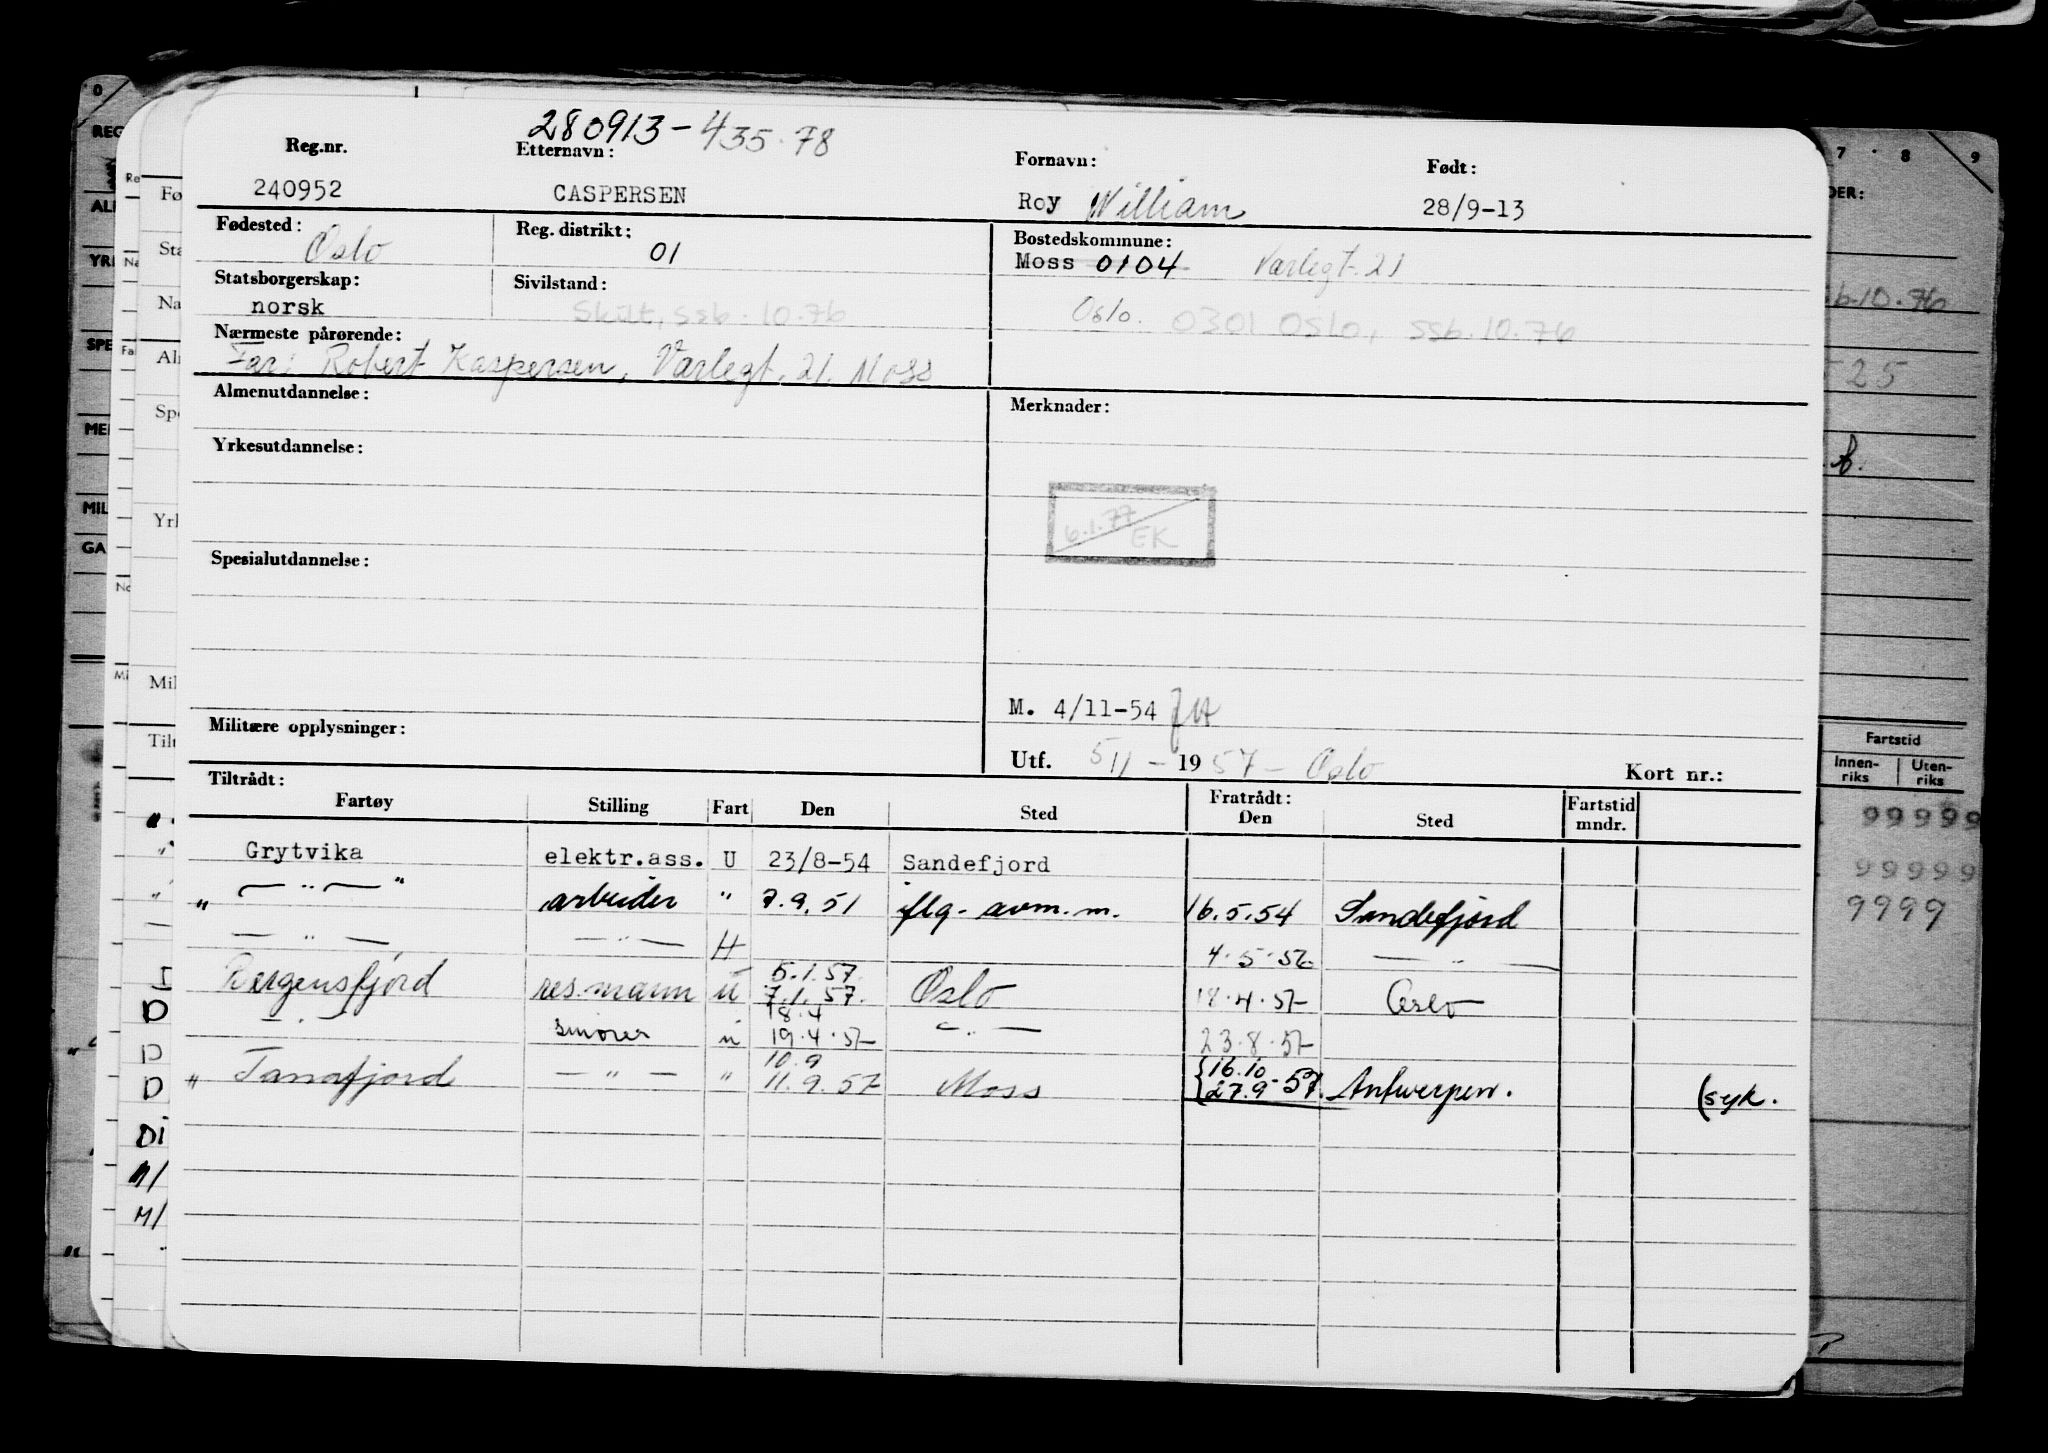 280913-435.78
Reg.nr. Etternavn: Fornavn: Født:
240952 CASPERSEN Roy William 28/9-13
Fødested: Oslo Reg. distrikt: 01 Bostedskommune:
Moss 0104 Varlegt. 21
Statsborgerskap: norsk Sivilstand: Skilt, ssb. 10.76 Oslo. 0301 Oslo, ssb. 10.76
Nærmeste pårørende:
Far: Robert Kaspersen, Varlegt. 21. Moss
Almenutdannelse: Merknader:
Yrkesutdannelse:
6.1.77 EK
Spesialutdannelse:
M. 4/11-54
Militære opplysninger:
Utf. 5/11 - 1957 - Oslo Kort nr.:
Tiltrådt: Fratrådt:
Fartøy Stilling Fart Den Sted Den Sted Fartstid mndr.
Grytvika elektr.ass. U 23/8-54 Sandefjord
" — " — " arbeider " 7.9.51 iflg. avm.m. 16.5.54 Sandefjord
— " — — " — H 4.5.56 — " —
Bergensfjord res.mann u 5.1.57. 7.1.57. Oslo 18.4.57 Oslo
— " — smører u 18.4 19.4.57 — " — 23.8.57
" Tanafjord — " — " 10.9 11.9.57 Moss {16.10 27.9-57. Antwerpen. (syk.
REG
ALM
YRK
SPE
MIL
GA
7 8 9
DER:
ssb.10.76
25
Fartstid
Innen-riks Uten-riks
99999
99999
9999
Fø
Sta
Na
Alm
Spe
Yrk
Mil
Tilt
I
D
D
D
DI
M/
M/